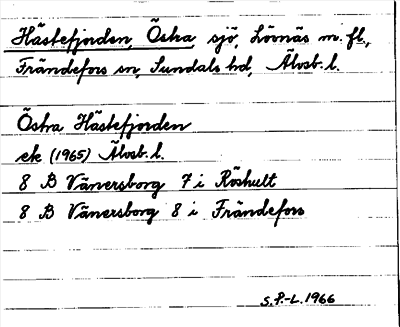 Hästefjorden, Östra, sjö, Lövnäs m. fl.,
Frändefors sn, Sundals hd, Älvsb. l.
Östra Hästefjorden
ek (1965) Älvsb. l.
8 B Vänersborg 7 i Röshult
8 B Vänersborg 8 i Frändefors
S.P.-L. 1966